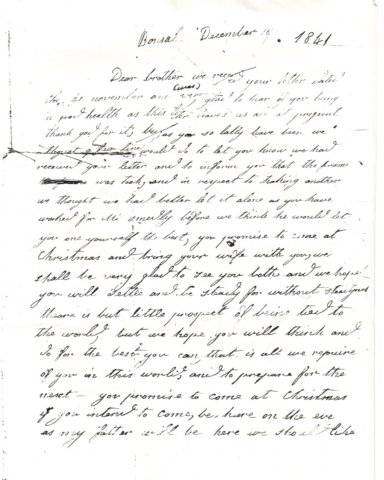 Bonsal December 19. 1841
Dear brother we received your letter dated
the 25 november and (was) very glad to hear of you being
in good health as this leaves us all at present
thank you for it, as you so lately have been we
thought a few lines would do to let you know we had
received your letter and to inform you that the frame
was took, and in respect to making another
we thought we had better let it alone as you have
worked for Mr smedly before we think he would let
you one yourself the best, you promise to come at
Christmas and bring your wife with you, we
shall be very glad to see you bothe and we hope
you will settle and be steady for without steadyness
theare is but little prospect of being tied to
the world, but we hope you will think and
do for the best you can, that is all we require
of you in this world, and to prepare for the
next – you promise to come at Christmas
if you intend to come, be here on the eve
as my father will be here we should like